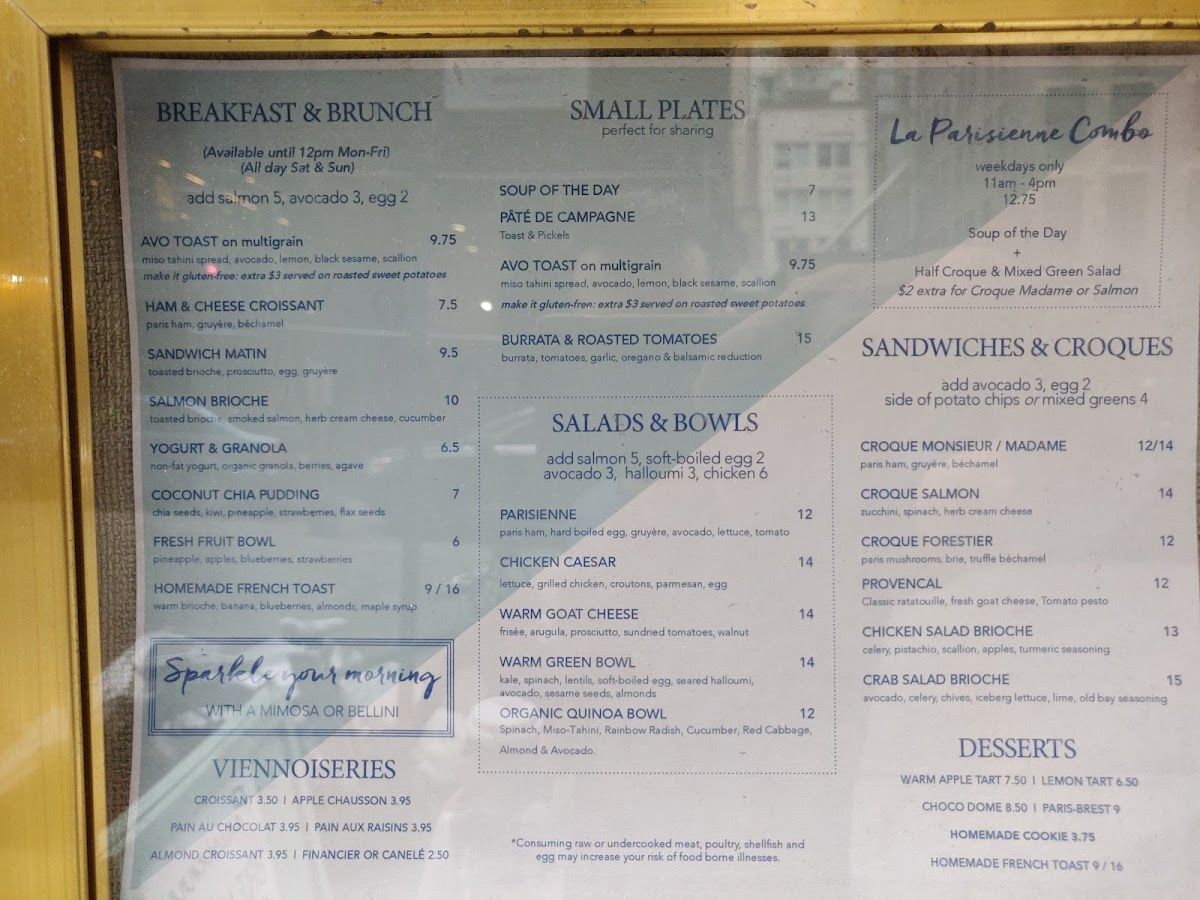 BREAKFAST & BRUNCH
(Available until 12pm Mon-Fri)
(All day Sat & Sun)
add salmon 5, avocado 3, egg 2
AVO TOAST on multigrain 9.75
miso tahini spread, avocado, lemon, black sesame, scallion
make it gluten-free: extra $3 served on roasted sweet potatoes
HAM & CHEESE CROISSANT 7.5
paris ham, gruyère, béchamel
SANDWICH MATIN 9.5
toasted brioche, prosciutto, egg, gruyère
SALMON BRIOCHE 10
toasted brioche, smoked salmon, herb cream cheese, cucumber
YOGURT & GRANOLA 6.5
non-fat yogurt, organic granola, berries, agave
COCONUT CHIA PUDDING 7
chia seeds, kiwi, pineapple, strawberries, flax seeds
FRESH FRUIT BOWL 6
pineapple, apples, blueberries, strawberries
HOMEMADE FRENCH TOAST 9 / 16
warm brioche, banana, blueberries, almonds, maple syrup
Sparkle your morning
WITH A MIMOSA OR BELLINI
VIENNOISERIES
CROISSANT 3.50 | APPLE CHAUSSON 3.95
PAIN AU CHOCOLAT 3.95 | PAIN AUX RAISINS 3.95
ALMOND CROISSANT 3.95 | FINANCIER OR CANELÉ 2.50
SMALL PLATES
perfect for sharing
SOUP OF THE DAY 7
PÂTÉ DE CAMPAGNE 13
Toast & Pickels
AVO TOAST on multigrain 9.75
miso tahini spread, avocado, lemon, black sesame, scallion
make it gluten-free: extra $3 served on roasted sweet potatoes
BURRATA & ROASTED TOMATOES 15
burrata, tomatoes, garlic, oregano & balsamic reduction
SALADS & BOWLS
add salmon 5, soft-boiled egg 2
avocado 3, halloumi 3, chicken 6
PARISIENNE 12
paris ham, hard boiled egg, gruyère, avocado, lettuce, tomato
CHICKEN CAESAR 14
lettuce, grilled chicken, croutons, parmesan, egg
WARM GOAT CHEESE 14
frisée, arugula, prosciutto, sundried tomatoes, walnut
WARM GREEN BOWL 14
kale, spinach, lentils, soft-boiled egg, seared halloumi,
avocado, sesame seeds, almonds
ORGANIC QUINOA BOWL 12
Spinach, Miso-Tahini, Rainbow Radish, Cucumber, Red Cabbage,
Almond & Avocado.
*Consuming raw or undercooked meat, poultry, shellfish and
egg may increase your risk of food borne illnesses.
La Parisienne Combo
weekdays only
11am - 4pm
12.75
Soup of the Day
+
Half Croque & Mixed Green Salad
$2 extra for Croque Madame or Salmon
SANDWICHES & CROQUES
add avocado 3, egg 2
side of potato chips or mixed greens 4
CROQUE MONSIEUR / MADAME 12/14
paris ham, gruyère, béchamel
CROQUE SALMON 14
zucchini, spinach, herb cream cheese
CROQUE FORESTIER 12
paris mushrooms, brie, truffle béchamel
PROVENCAL 12
Classic ratatouille, fresh goat cheese, Tomato pesto
CHICKEN SALAD BRIOCHE 13
celery, pistachio, scallion, apples, turmeric seasoning
CRAB SALAD BRIOCHE 15
avocado, celery, chives, iceberg lettuce, lime, old bay seasoning
DESSERTS
WARM APPLE TART 7.50 | LEMON TART 6.50
CHOCO DOME 8.50 | PARIS-BREST 9
HOMEMADE COOKIE 3.75
HOMEMADE FRENCH TOAST 9 / 16